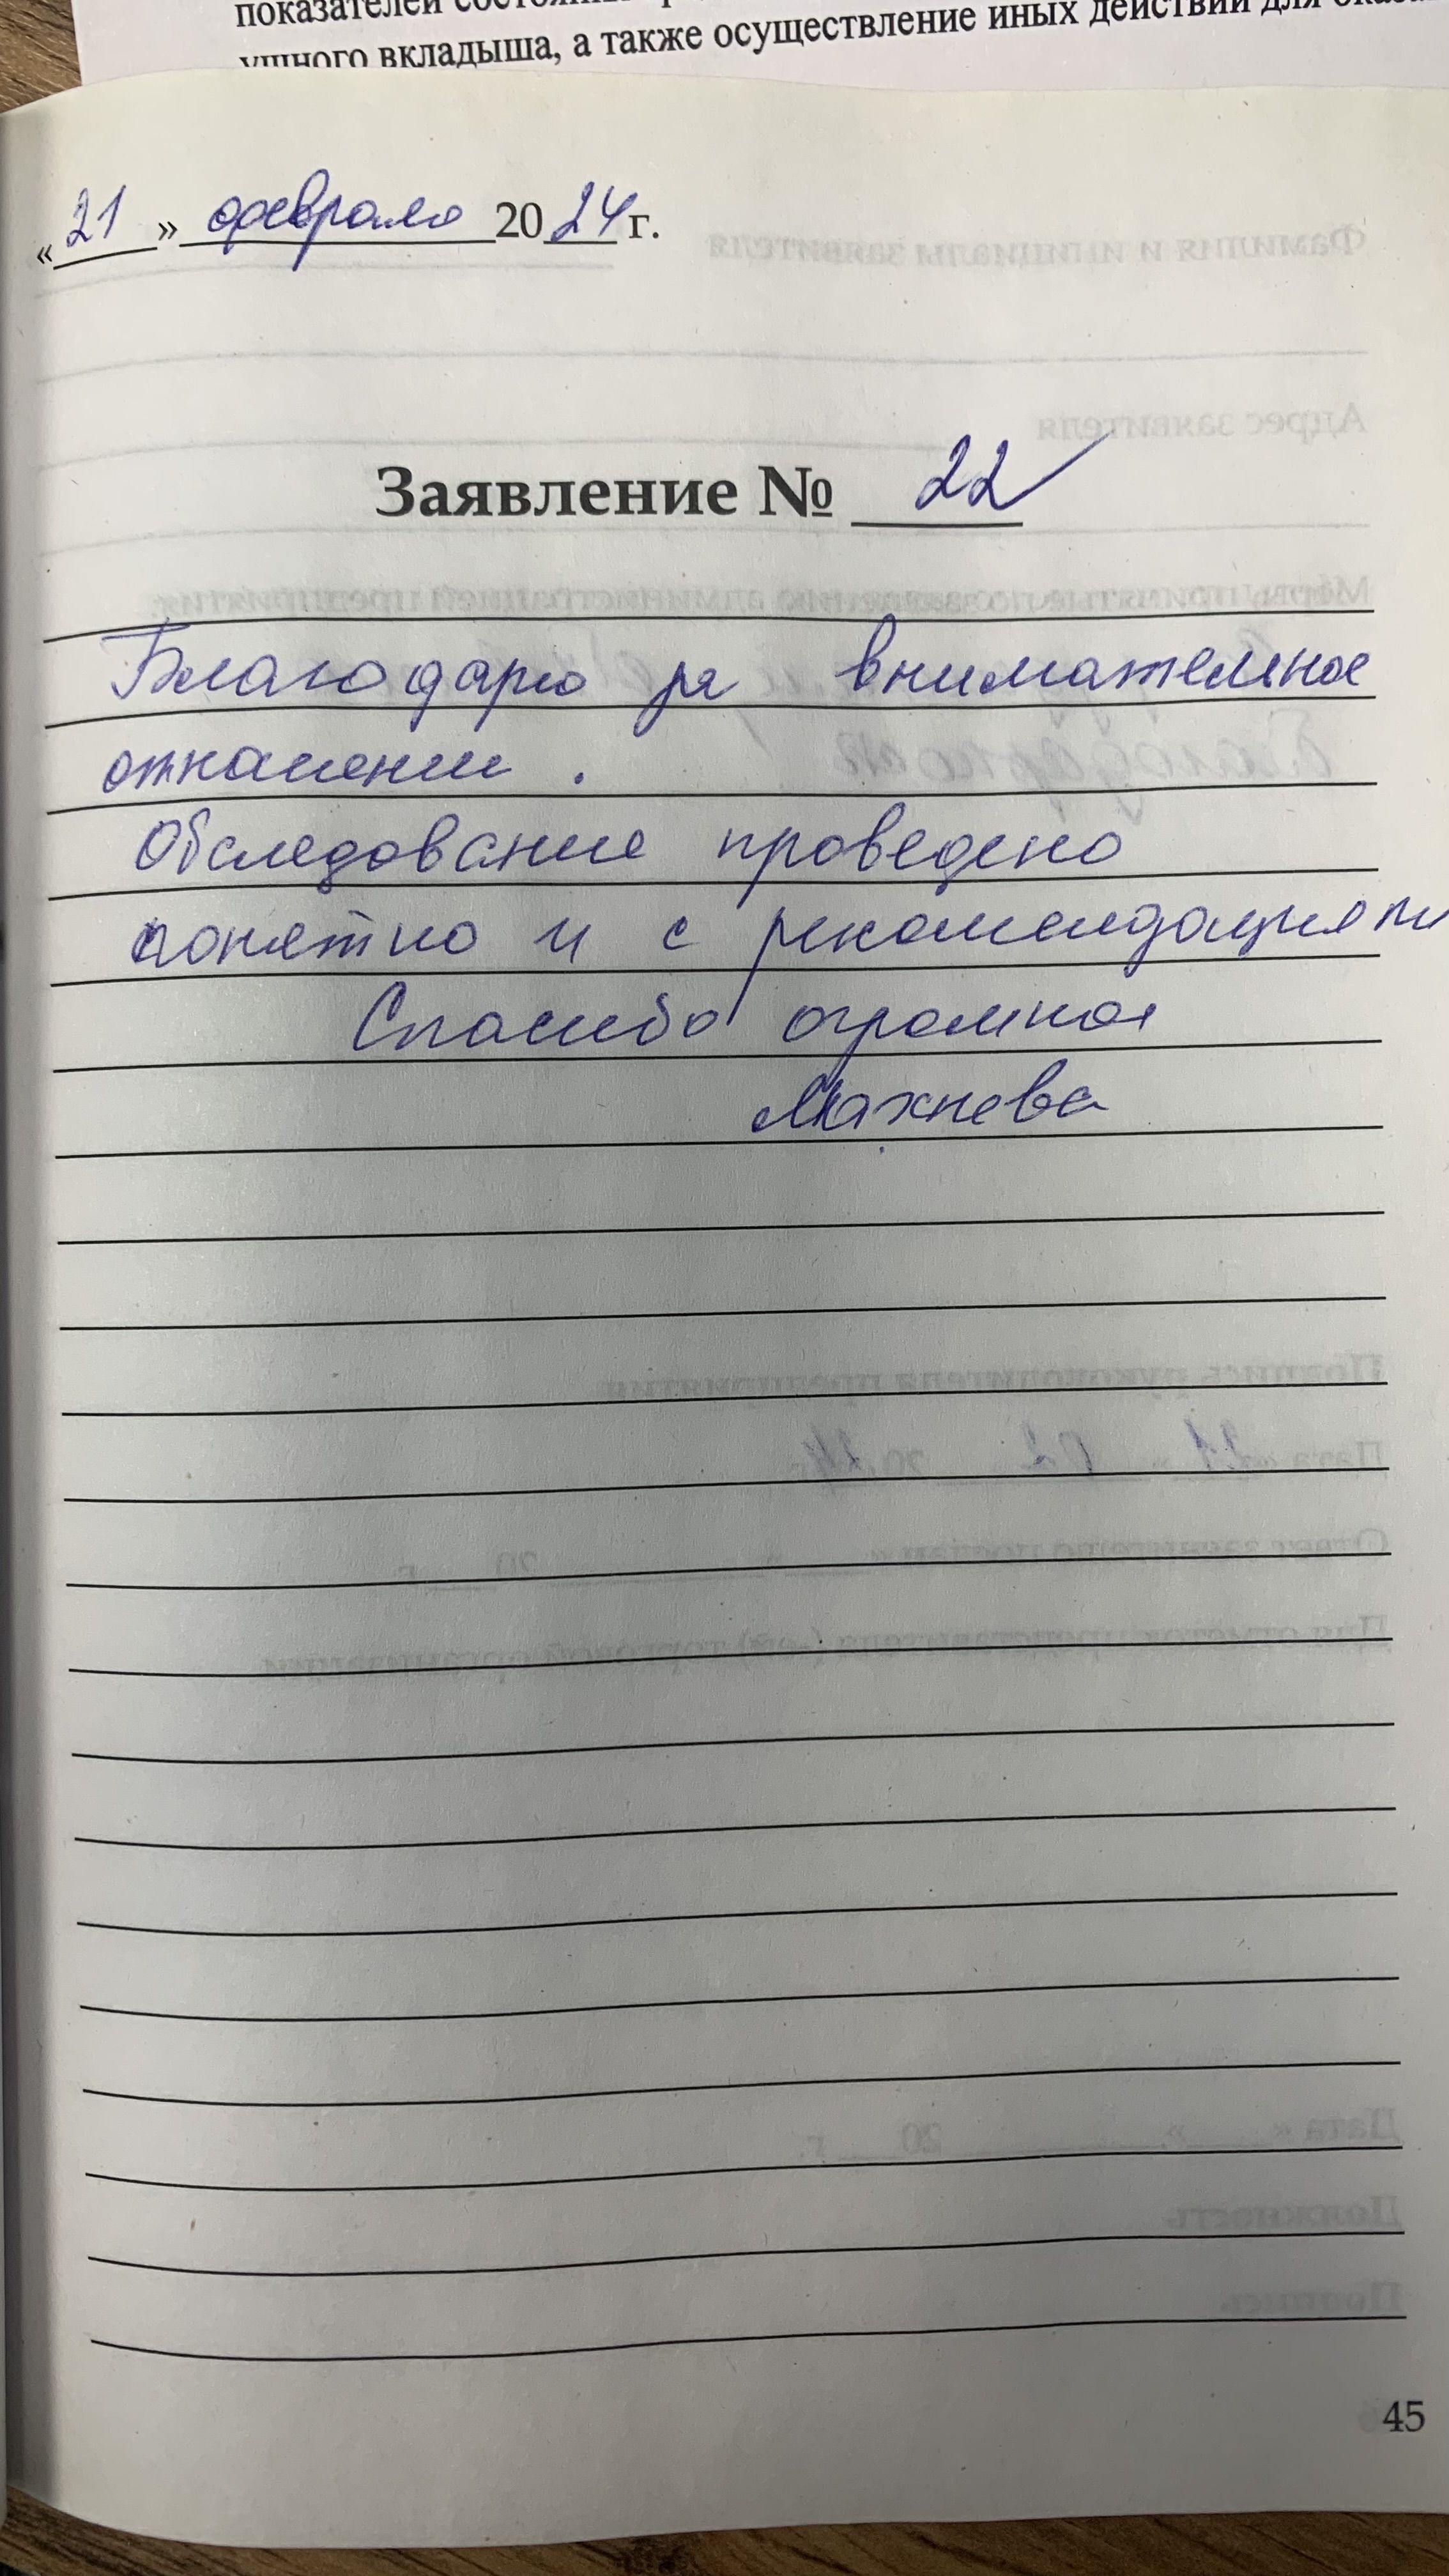 ушного вкладыша, а также осуществление иных действий для
«21» февраля 2024 г.
Заявление № 22
Благодарю за внимательное
отношение.
Обследование проведено
понятно и с рекомендациями
Спасибо огромное
Махнева
45